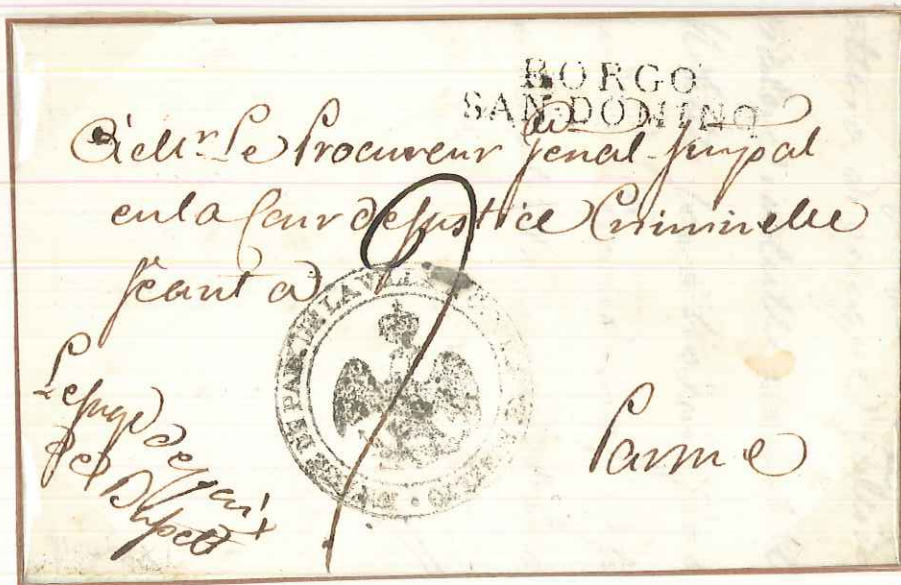 BORGO
SAN-DOMINO
à Mr. Le Procureur Genal Impal
en la Cour de Justice Criminelle
séant à
Parme
Le Juge de Paix
DE PAIX DE LA VILLE